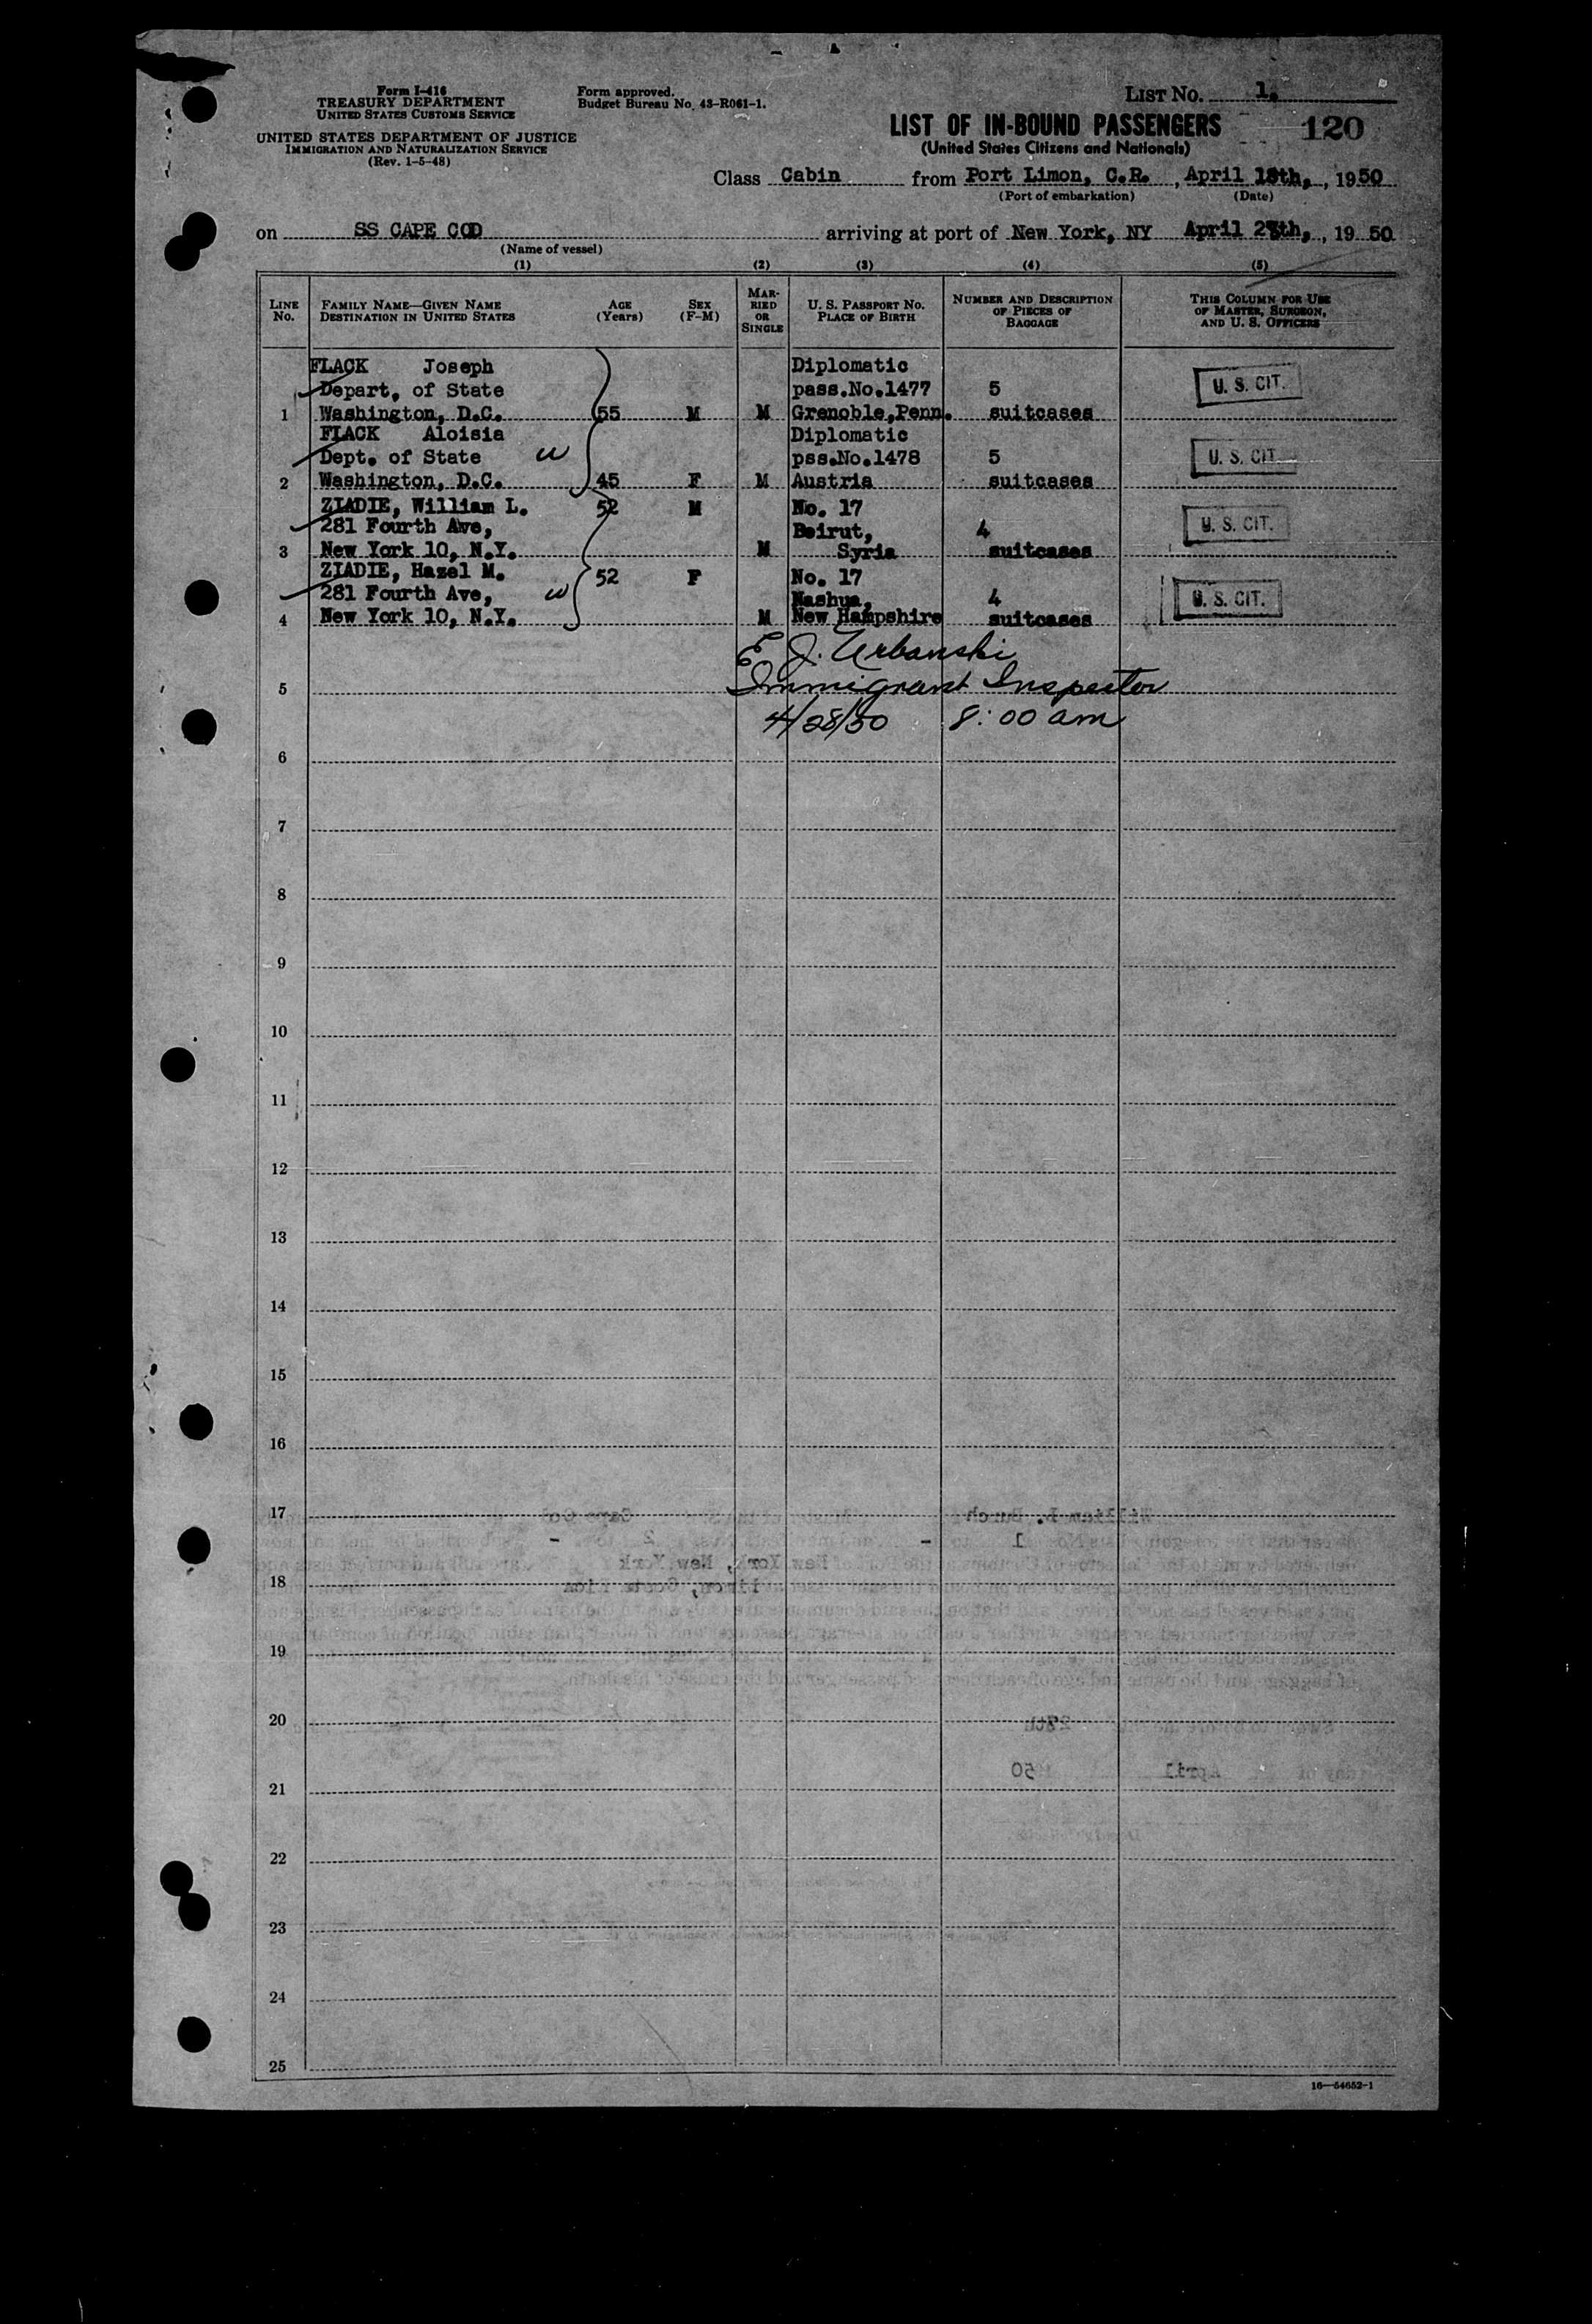 Form I-416
TREASURY DEPARTMENT
UNITED STATES CUSTOMS SERVICE
UNITED STATES DEPARTMENT OF JUSTICE
IMMIGRATION AND NATURALIZATION SERVICE
(Rev. 1-5-48)
Form approved.
Budget Bureau No. 43-R061-1.
LIST No. 1.
LIST OF IN-BOUND PASSENGERS 120
(United States Citizens and Nationals)
Class Cabin from Port Limon, C.R. , April th, , 1950
(Port of embarkation) (Date)
on SS CAPE COD arriving at port of New York, NY April th, , 19 50
(Name of vessel)
(1) (2) (3) (4) (5)
LINE No. FAMILY NAME—GIVEN NAME DESTINATION IN UNITED STATES AGE (Years) SEX (F-M) MARRIED OR SINGLE U. S. PASSPORT No. PLACE OF BIRTH NUMBER AND DESCRIPTION OF PIECES OF BAGGAGE THIS COLUMN FOR USE OF MASTER, SURGEON, AND U. S. OFFICERS
FLACK Joseph Diplomatic
Depart, of State pass.No.1477 5 U. S. CIT.
1 Washington, D.C. 55 M M Grenoble,Penn. suitcases
FLACK Aloisia Diplomatic
Dept. of State w pss.No.1478 5 U. S. CIT.
2 Washington, D.C. 45 F M Austria suitcases
ZIADIE, William L. 52 M No. 17
281 Fourth Ave, Beirut, 4 U. S. CIT.
3 New York 10, N.Y. M Syria suitcases
ZIADIE, Hazel M. 52 F No. 17
281 Fourth Ave, w Nashua, 4 U. S. CIT.
4 New York 10, N.Y. M New Hampshire suitcases
E J. Urbanski
5 Immigrant Inspector
4/28/50 8:00 am
6
7
8
9
10
11
12
13
14
15
16
17
18
19
20
21
22
23
24
25
16—54652-1